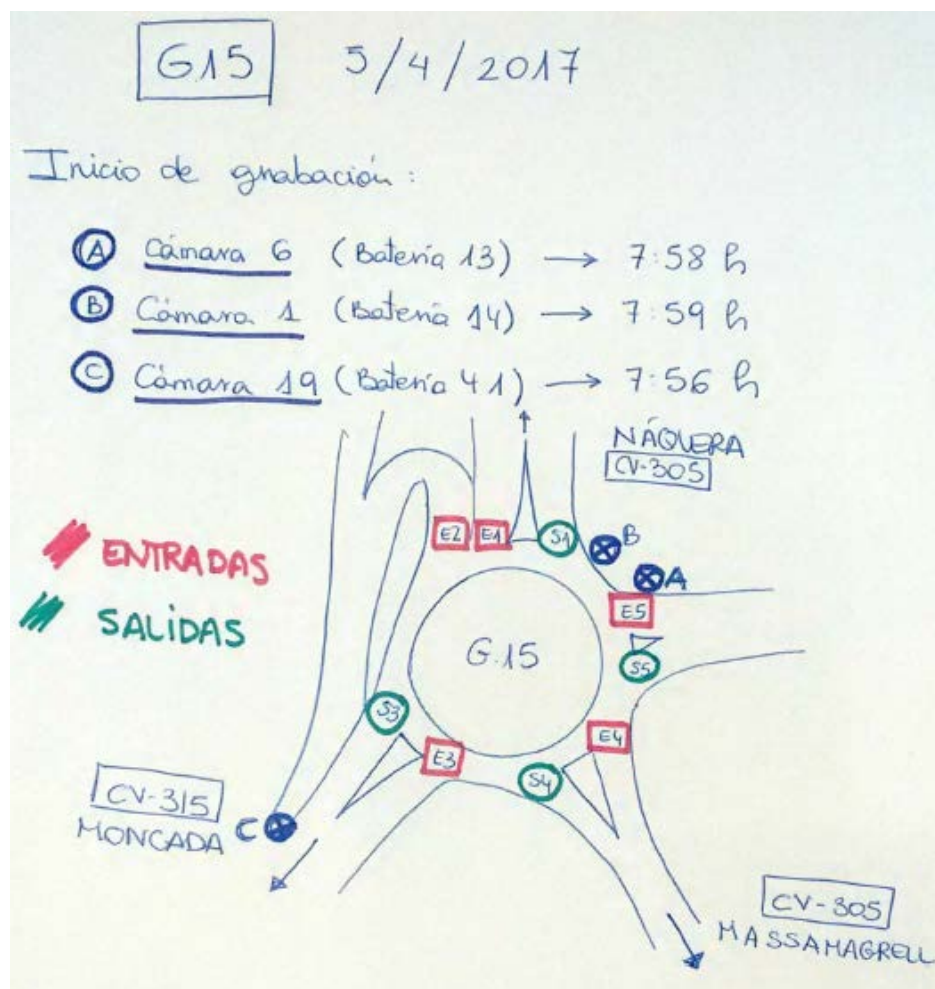 G15 5/4/2017
Inicio de grabación:
A Cámara 6 (Batería 13) → 7:58 h
B Cámara 1 (Batería 14) → 7:59 h
C Cámara 19 (Batería 41) → 7:56 h
NÁQUERA
CV-305
E2 E1 S1 B
ENTRADAS
A
E5
SALIDAS
G.15
S5
S3
E4
E3
S4
CV-315
MONCADA C
CV-305
MASSAMAGRELL